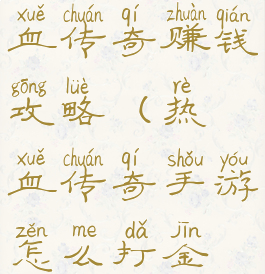 xuě chuán qí zhuàn qián
血传奇赚钱
gōng lüè rè
攻略（热
xuě chuán qí shǒu yóu
血传奇手游
zěn me dǎ jīn
怎么打金